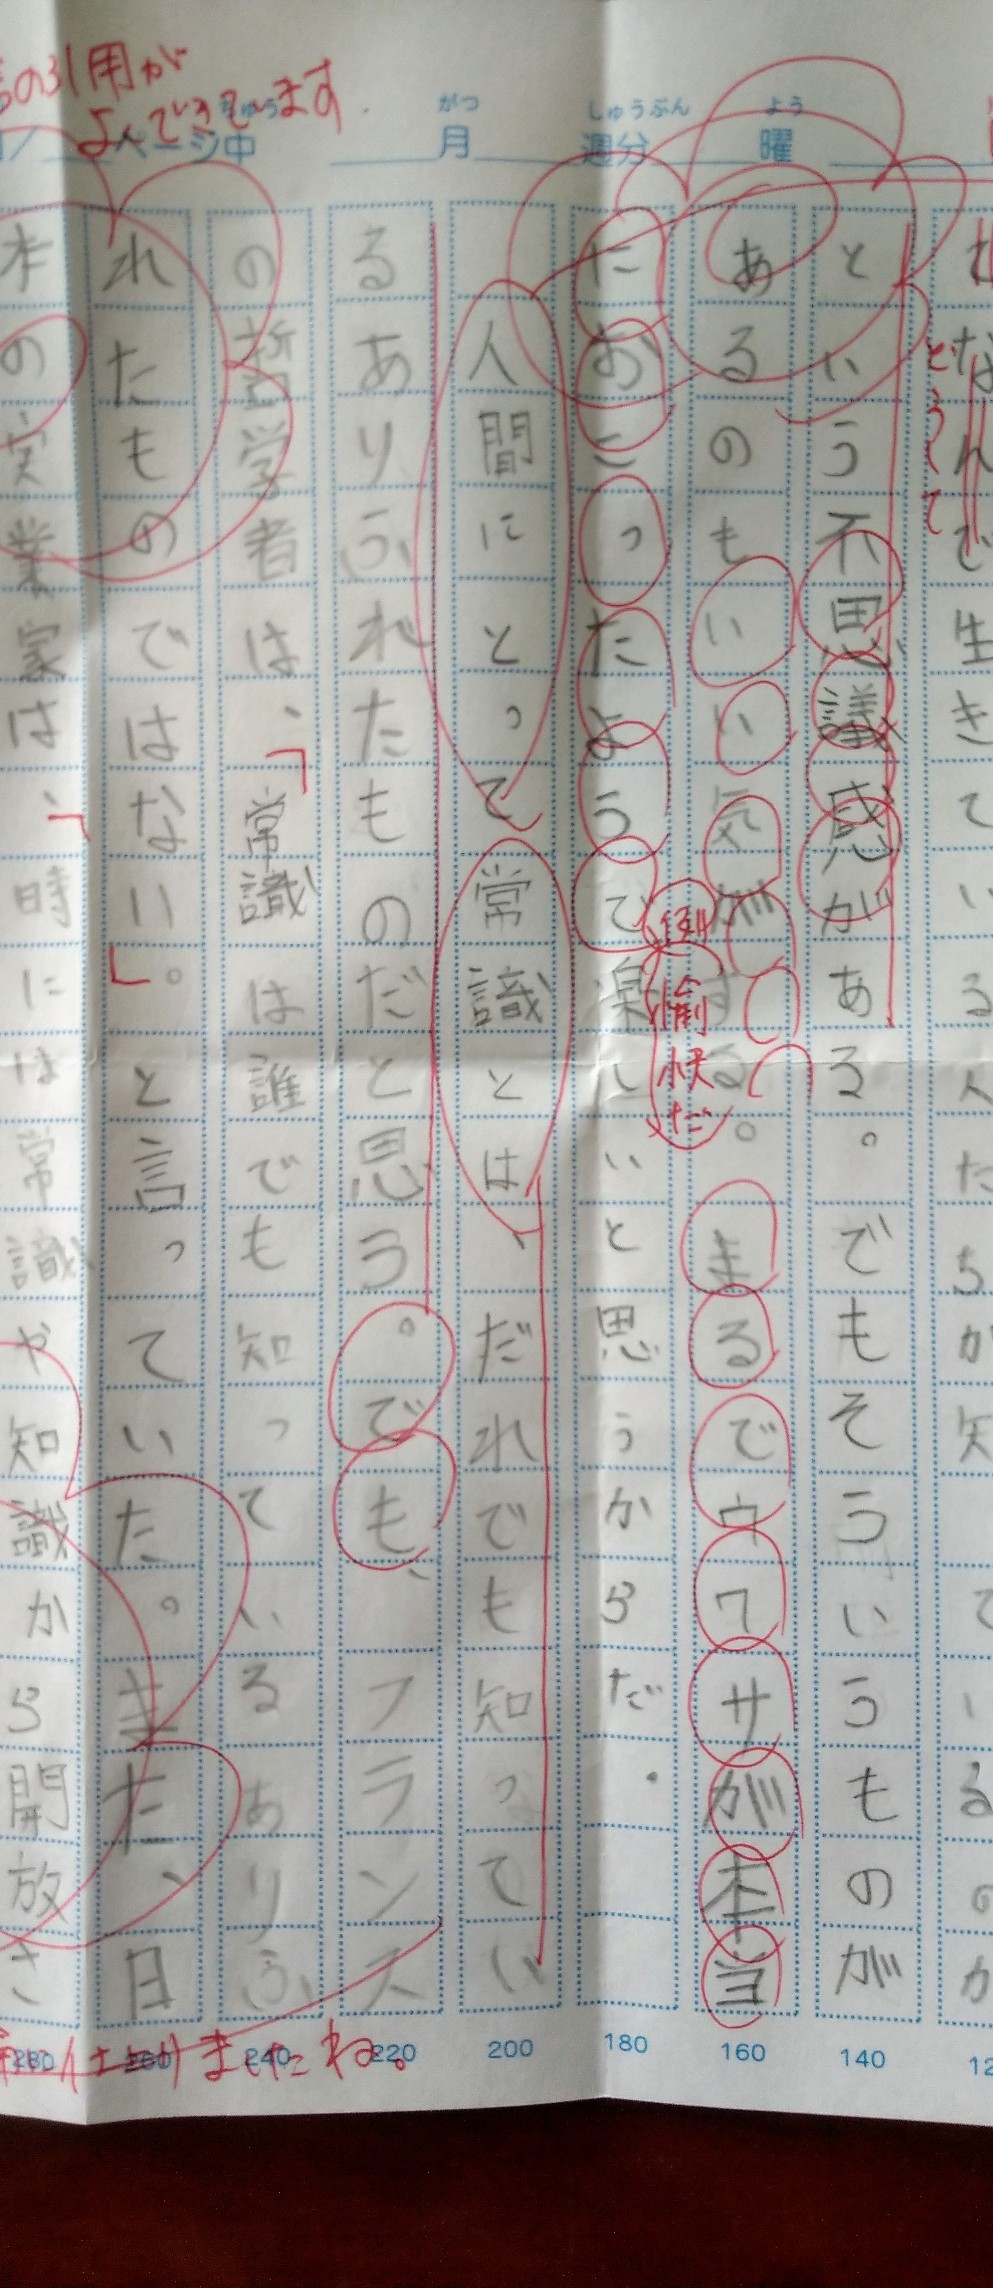 の引用が
よくできています
ページ中
がつ
月
しゅうぶん
週分
よう
曜
どうして
生きている人たち
という不思議感がある。でもそういうものが
あるのもいい気がする。まるでウワサが本当
愉快だ
におこったようで楽しいと思うからだ。
人間にとって常識とは、だれでも知ってい
るありふれたものだと思う。でも、フランス
の哲学者は、「常識は誰でも知っているありふ
れたものではない」。と言っていた。また、日
本の実業家は、「時には常識や知識から開放さ
ましたね。
120
140
160
180
200
220
240
260
280